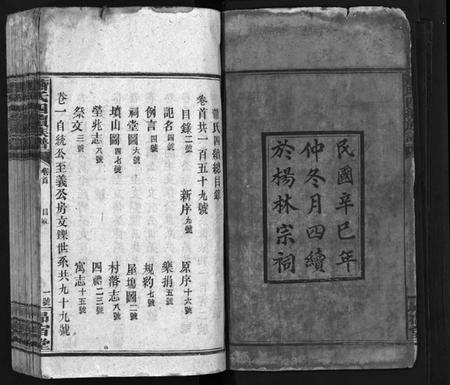 民國辛巳年
仲冬月四續
於楊林宗祠
蕭氏四續總目錄
卷首共一百五十九號
目錄二號 新序九號 原序十六號
記名四號 樂捐五號
例言四號 規約七號
祠堂圖六號 屋場圖二號
墳山圖四七號 村落志八號
塋兆志八號 四禮二三號
祭文三號 寓志十五號
卷一自統公至義公房文鑠世系共九十九號
卷首
目錄
一號